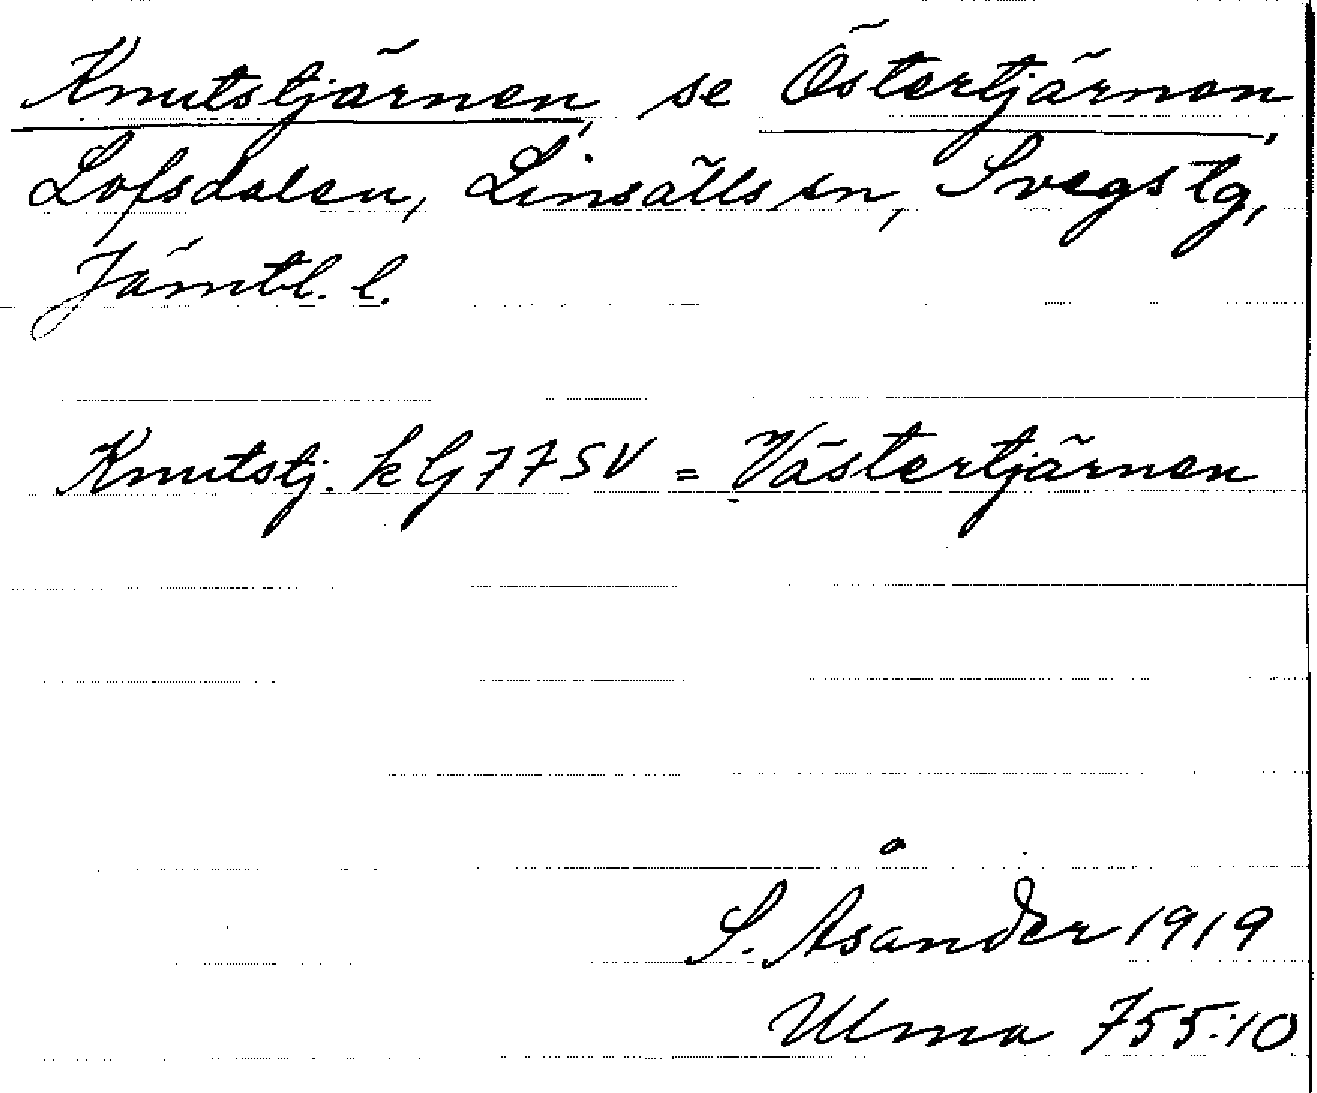 Knutstjärnen, se Östertjärnen,
Lofsdalen, Linsälls sn, Svegs tg,
Jämtl. l.
Knutstj. k G 77 SV = Västertjärnen
S. Åsander 1919
Ulma 755:10